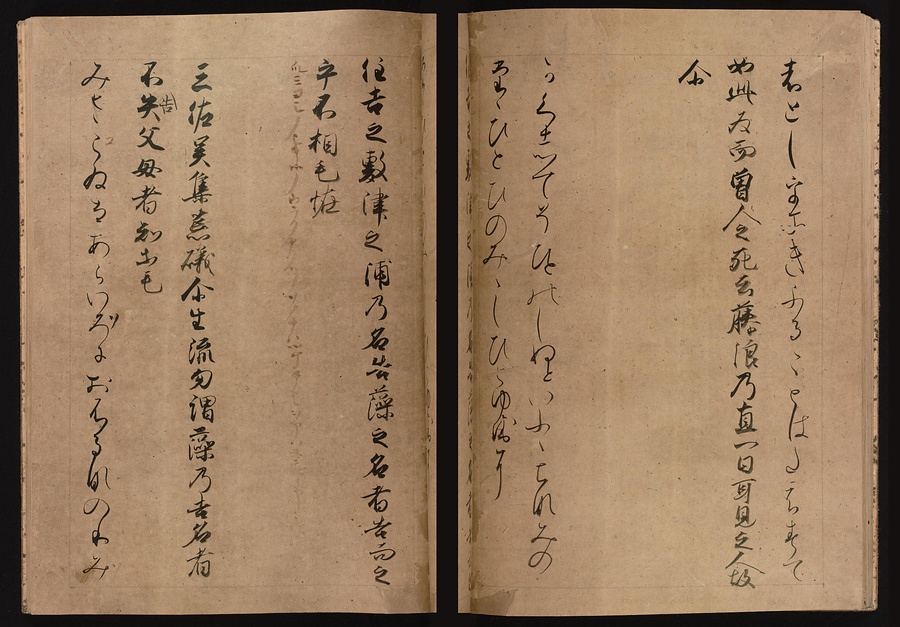 はとしをそきふることはたえすて
如此為而曽人之死云藤浪乃直一日耳見之人故
尓
かくしてそひとのしぬといふゝちなみの
たゝひとひのみゝしひとゆゑに
住吉之敷津之浦乃名告藻之名者告而之
乎不相毛恠
三佐呉集荒礒尓生流勿謂藻乃吉名者
不失父母者知等毛
告
みさこゐるあらいそにおふるなのりそ